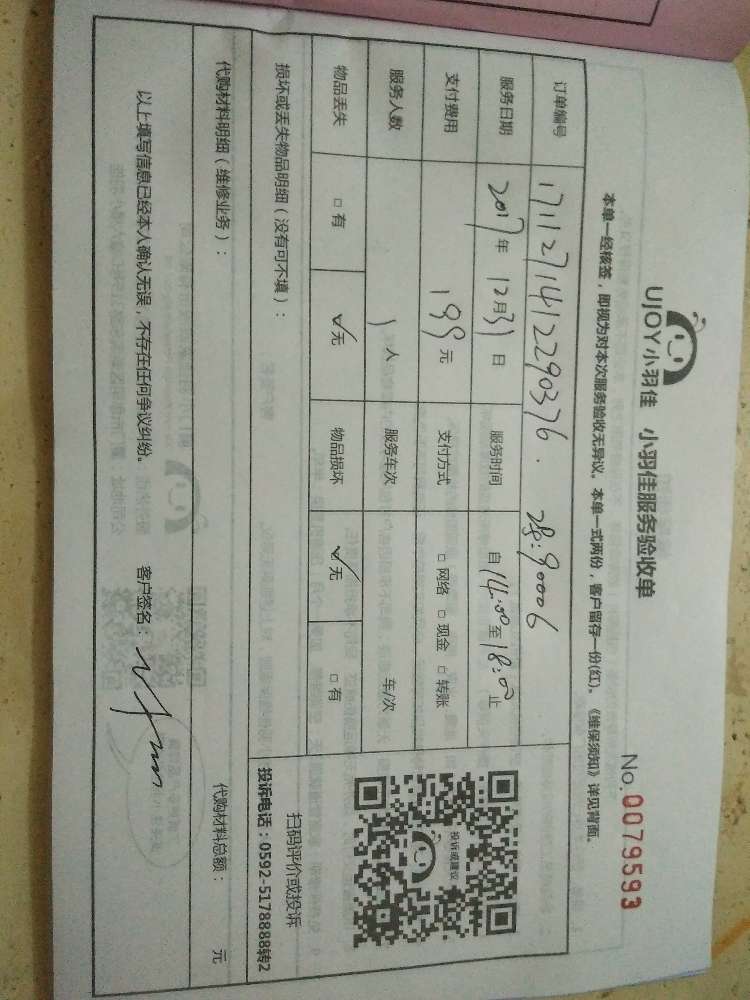 UJOY小羽佳 小羽佳服务验收单
No. 0079593
本单一经核签，即视为对本次服务验收无异议。本单一式两份，客户留存一份(红)。《维保须知》详见背面。
订单编号 171127141229037​6. 9006
服务日期 2017年 12月31日 服务时间 自14:00至18:00止
支付费用 199元 支付方式 □ 网络 □ 现金 □ 转账
服务人数 1人 服务车次 车/次
物品丢失 □ 有 ☑无 物品损坏 ☑无 □ 有
损坏或丢失物品明细（没有可不填）：
代购材料明细（维修业务）：
代购材料总额： 元
以上填写信息已经本人确认无误，不存在任何争议纠纷。 客户签名：
投诉或建议
扫码评价或投诉
投诉电话：0592-5178888转2